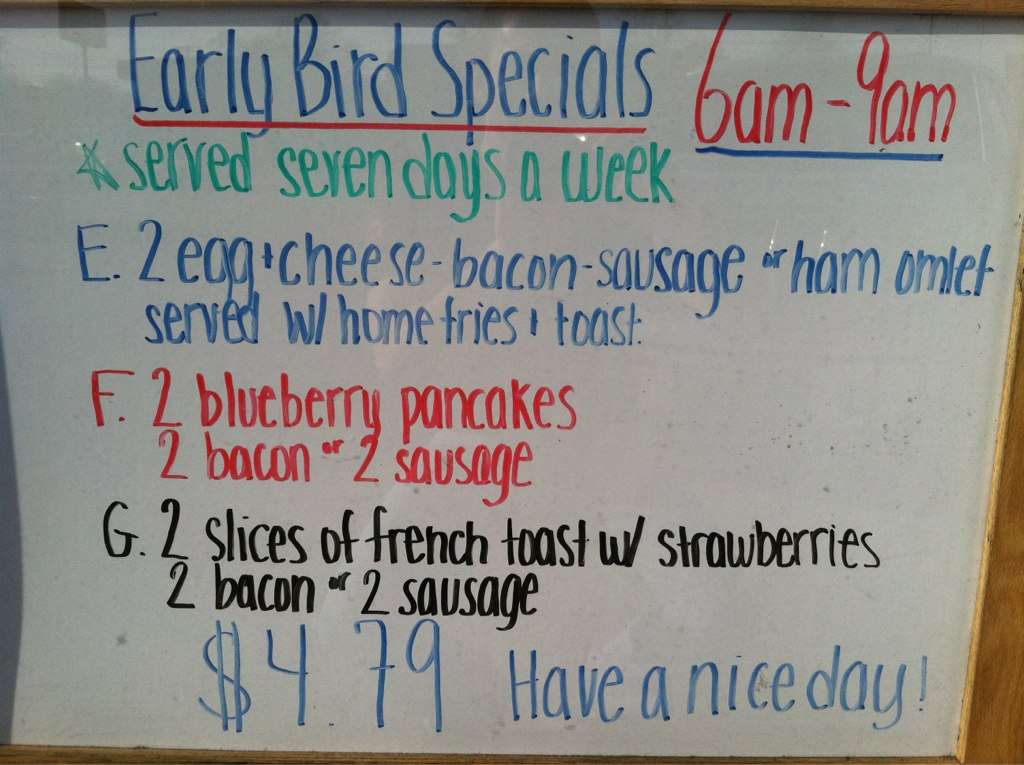 Early Bird Specials 6am-9am
* served seven days a week
E. 2 egg + cheese-bacon-sausage or ham omlet
served w/ home fries + toast.
F. 2 blueberry pancakes
2 bacon or 2 sausage
G. 2 slices of french toast w/ strawberries
2 bacon or 2 sausage
$4.79 Have a nice day!